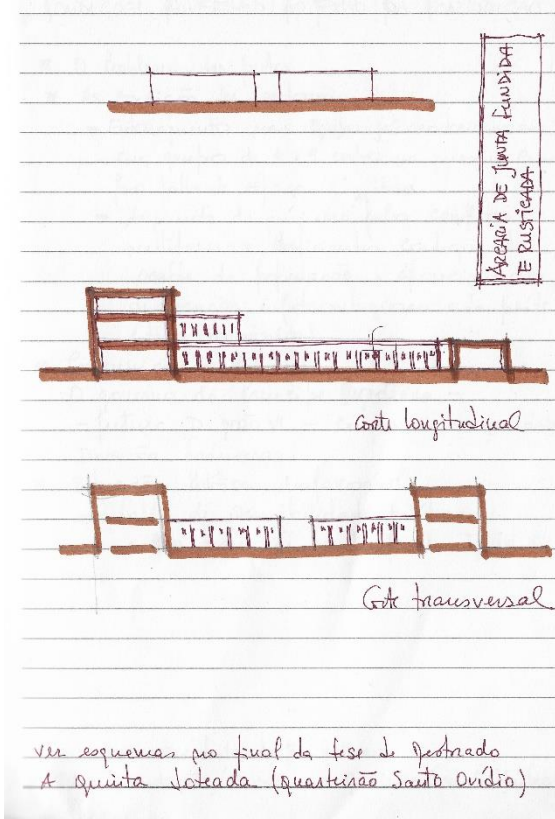 ARCARIA DE JUNTA FUNDIDA
E RUSTICADA
corte longitudinal
Corte transversal
ver esquemas no final da tese de Mestrado
A Quinta Loteada (quarteirão Santo Ovídio)